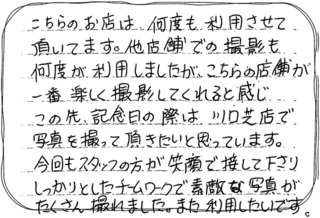 こちらのお店は、何度も利用させて
頂いてます。他店舗での撮影も
何度か利用しましたが、こちらの店舗が
一番楽しく撮影してくれると感じ
この先、記念日の際は川口芝店で
写真を撮って頂きたいと思っています。
今回もスタッフの方が笑顔で接して下さり
しっかりとしたチームワークで素敵な写真が
たくさん撮れました。また利用したいです。